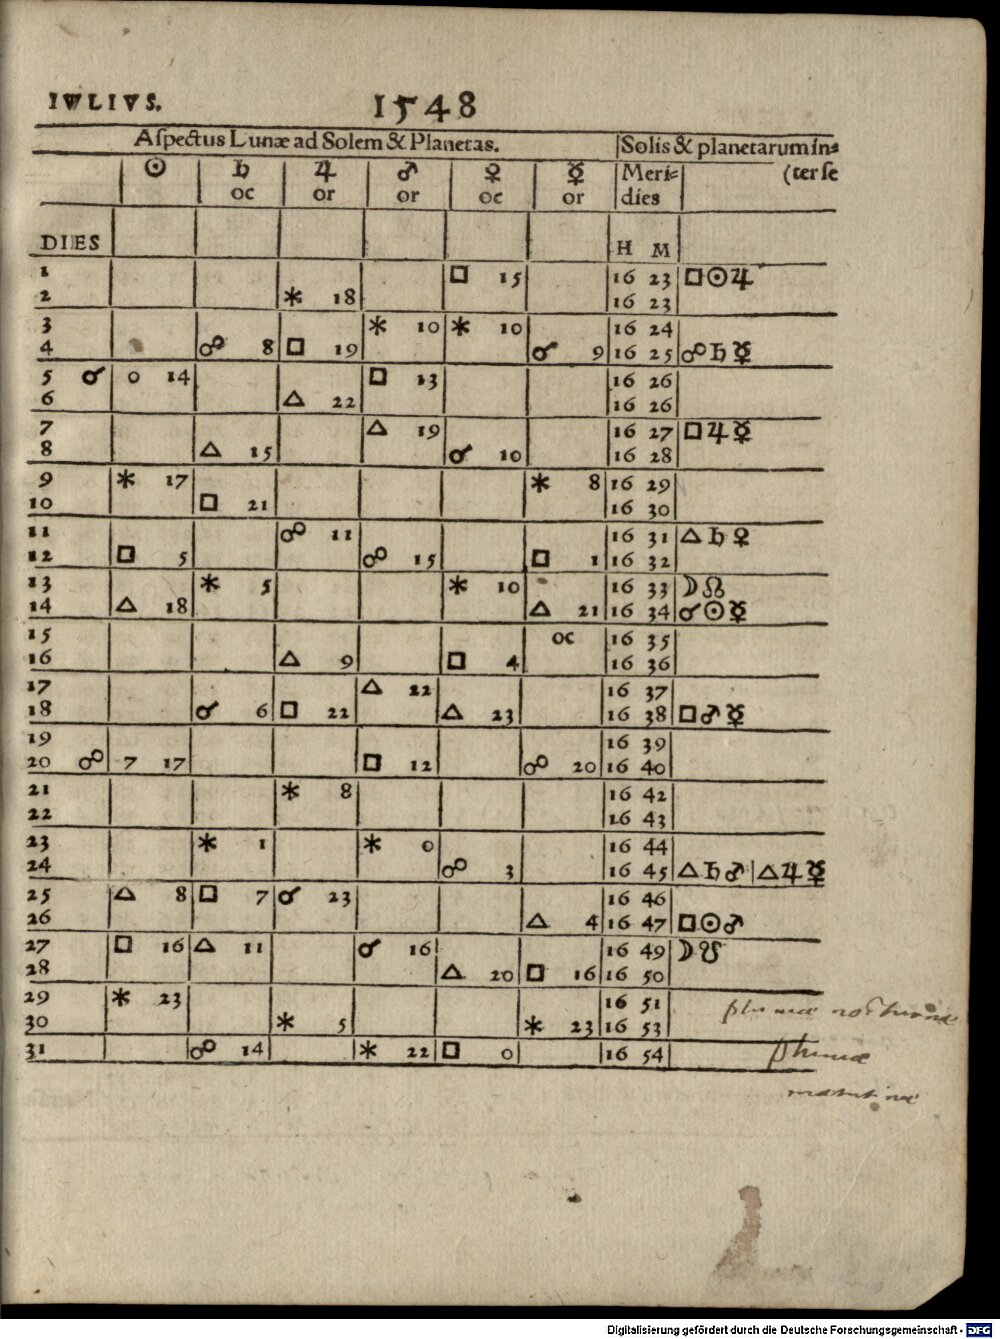 IVLIVS. 1548
Aſpectus Lunæ ad Solem & Planetas. Solis & planetarum in=
☉ ♄ ♃ ♂ ♀ ☿ Meri= (ter ſe
oc or or oc or dies
DIES H M
1 □ 15 16 23 □☉♃
2 ⚹ 18 16 23
3 ⚹ 10 ⚹ 10 16 24
4 ☍ 8 □ 19 ☌ 9 16 25 ☍♄☿
5 ☌ 0 14 □ 13 16 26
6 △ 22 16 26
7 △ 19 16 27 □♃☿
8 △ 15 ☌ 10 16 28
9 ⚹ 17 ⚹ 8 16 29
10 □ 21 16 30
11 ☍ 11 16 31 △♄♀
12 □ 5 ☍ 15 □ 1 16 32
13 ⚹ 5 ⚹ 10 16 33 ☽☊
14 △ 18 △ 21 16 34 ☌☉☿
15 oc 16 35
16 △ 9 □ 4 16 36
17 △ 22 16 37
18 ☌ 6 □ 22 △ 23 16 38 □♂☿
19 16 39
20 ☍ 7 17 □ 12 ☍ 20 16 40
21 ⚹ 8 16 42
22 16 43
23 ⚹ 1 ⚹ 0 16 44
24 ☍ 3 16 45 △♄♂ | △♃☿
25 △ 8 □ 7 ☌ 23 16 46
26 △ 4 16 47 □☉♂
27 □ 16 △ 11 ☌ 16 16 49 ☽☋
28 △ 20 □ 16 16 50
29 ⚹ 23 16 51
30 ⚹ 5 ⚹ 23 16 53
31 ☍ 14 ⚹ 22 □ 0 16 54
Digitalisierung gefördert durch die Deutsche Forschungsgemeinschaft - DFG